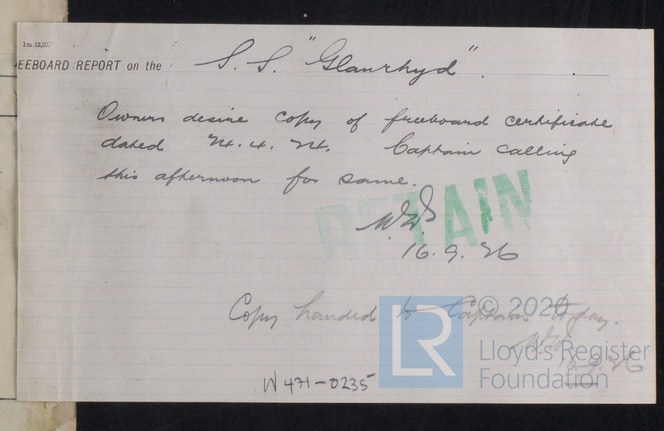 1m.12,20.
EEBOARD REPORT on the S. S. "Glanrhyd".
Owners desire copy of freeboard certificate
dated 24.4.24. Captain calling
this afternoon for same.
RETAIN
16.9.26
Copy handed to Captain today.
W471-0235
LR
© 2020
Lloyd's Register
Foundation